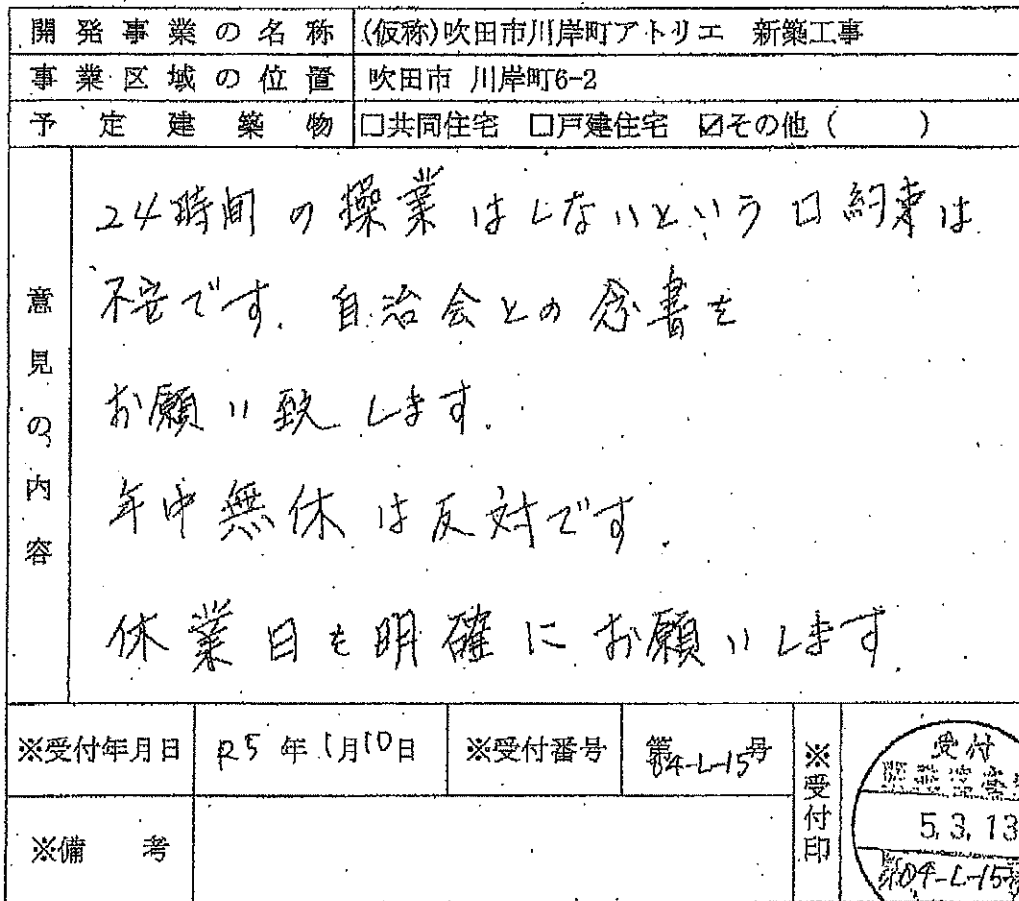 開発事業の名称 (仮称)吹田市川岸町アトリエ 新築工事
事業区域の位置 吹田市 川岸町6-2
予定建築物 □共同住宅 □戸建住宅 ☑その他( )
意見の内容
24時間の操業はしないという口約束は
不安です. 自治会との念書を
お願い致します.
年中無休は反対です.
休業日も明確にお願いします.
※受付年月日 R5年1月10日 ※受付番号 第04-L-15号 ※受付印
受付
開発審査
5.3.13
第04-L-15
※備考